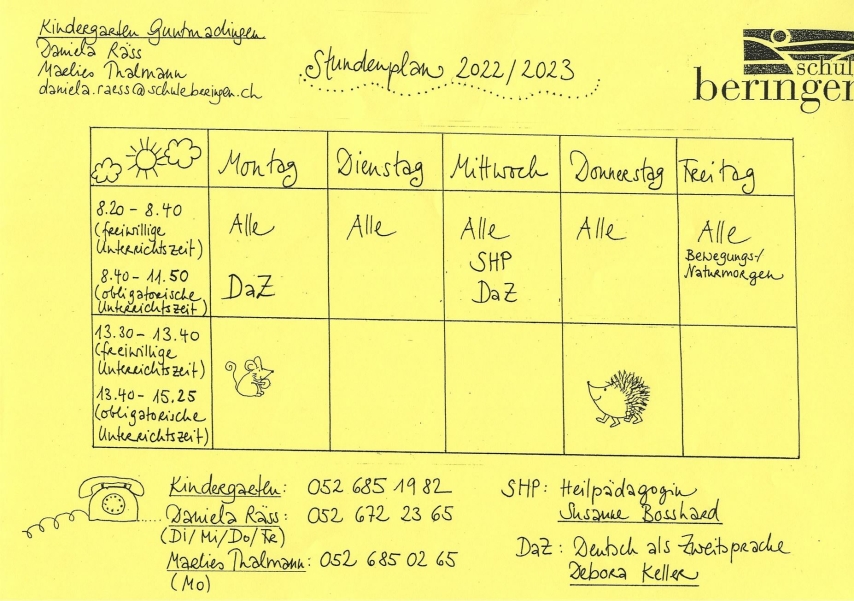 Kindergarten Guntmadingen
Daniela Räss
Marlies Thalmann
daniela.raess@schuleberingen.ch
Stundenplan 2022/2023
schul
beringen
Montag Dienstag Mittwoch Donnerstag Freitag
8.20 - 8.40
(freiwillige
Unterrichtszeit)
8.40 - 11.50
(obligatorische
Unterrichtszeit)
Alle
DaZ
Alle
Alle
SHP
DaZ
Alle
Alle
Bewegungs-/
Naturmorgen
13.30 - 13.40
(freiwillige
Unterrichtszeit)
13.40 - 15.25
(obligatorische
Unterrichtszeit)
Kindergarten: 052 685 19 82
Daniela Räss: 052 672 23 65
(Di/Mi/Do/Fr)
Marlies Thalmann: 052 685 02 65
(Mo)
SHP: Heilpädagogin
Susanne Bosshard
DaZ: Deutsch als Zweitsprache
Debora Keller